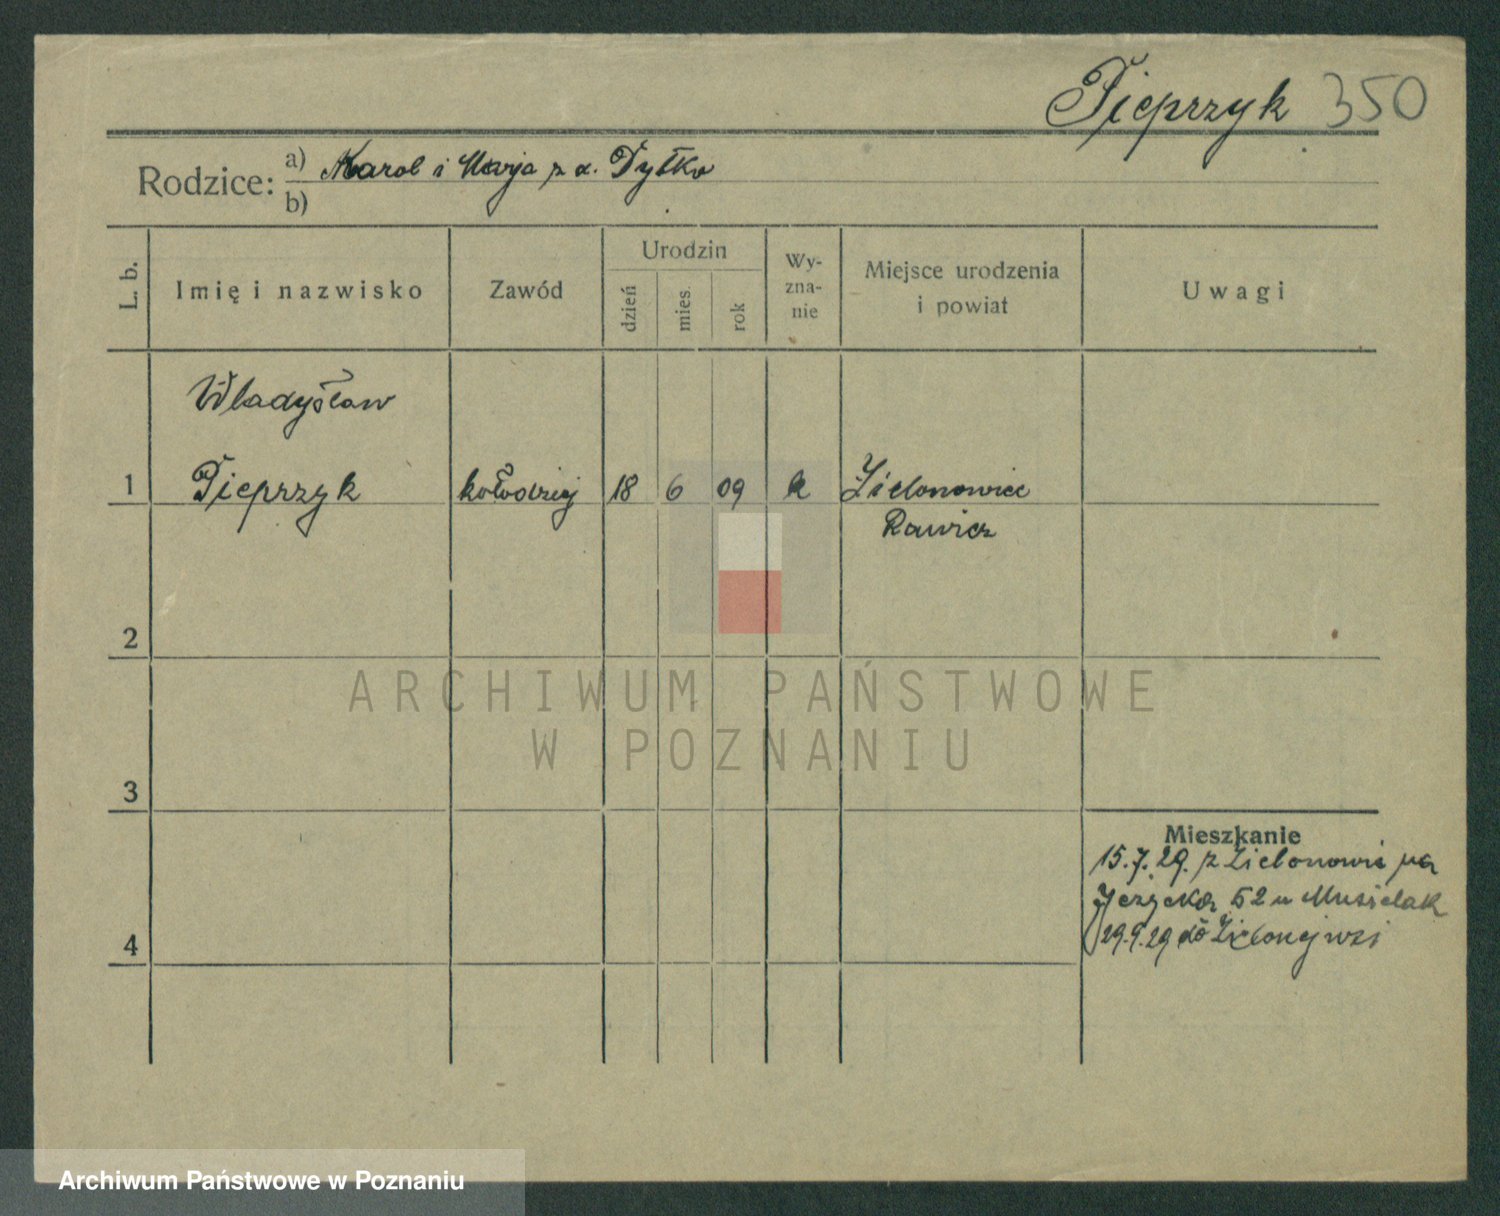 Pieprzyk 350
Rodzice: a) Karol i Marja z d. Pytko
b)
L. b.
Imię i nazwisko
Zawód
Urodzin
dzień
mies.
rok
Wy-
zna-
nie
Miejsce urodzenia
i powiat
Uwagi
Władysław
1 Pieprzyk kołodziej 18 6 09 k Zielonowieś
Rawicz
2
3
4
Mieszkanie
15.7.29. z Zielonowsi na
Jeżycka 52 u Musielak
29.9.29 do Zielonejwsi
ARCHIWUM PAŃSTWOWE
W POZNANIU
Archiwum Państwowe w Poznaniu